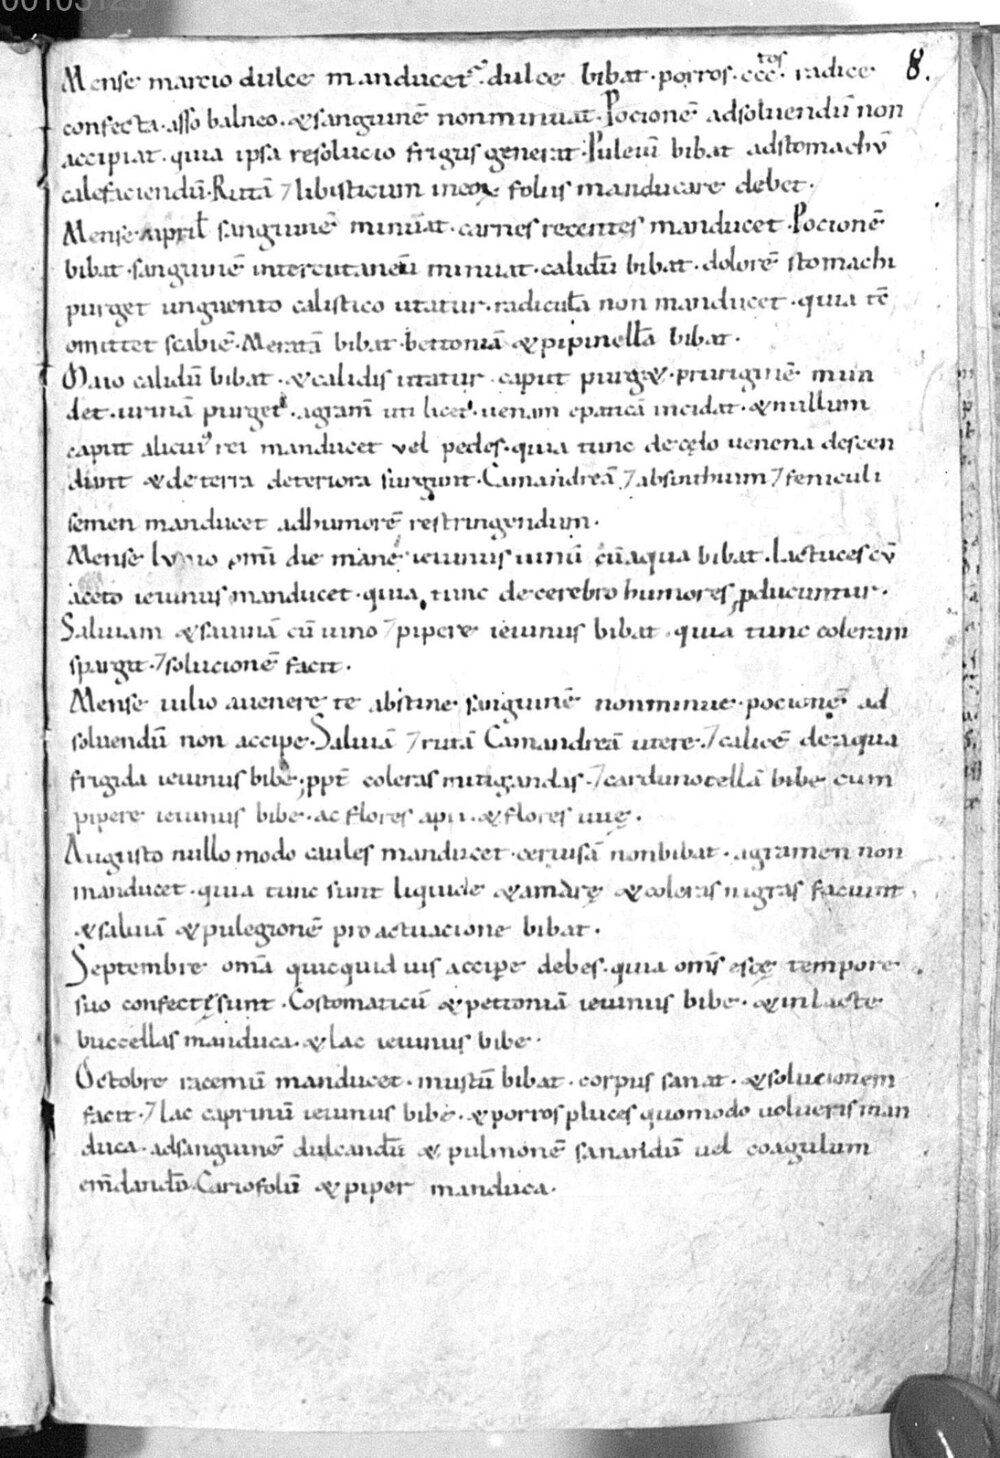 00103125
8.
Mense marcio dulce manducet · dulce bibat · porros · cccͭ ͦ ˢ · radice
confecta · asso balneo · &sanguinē nonminuat · Pocionē adsoluendū non
accipiat · quia ipsa resolucio frigus generat · Puleiū bibat adstomachū
calefaciendū · Rutā ⁊ libisticum manducare debet ·
Mense april̄ sanguinē minuat · carnes recentes manducet · Pocionē
bibat · sanguinē intercutaneū minuat · calidū bibat · dolorē stomachi
purget unguento calistico utatur · radicul̄a non manducet · quia tē
omittet scabiē · Meratā bibat · bettoniā & pipinellā bibat ·
Maio calidū bibat · & calidis utatur · caput purg& · pruriginē mun
det · urinā purget · uti licet · uenam epaticā incidat · & nullum
caput alicuiꝰ rei manducet vel pedes · quia tunc de cęlo uenena descen
dunt & de terra deteriora surgunt · Camandreā ⁊ absinthium ⁊ feniculi
semen manducet adhumorē restringendum ·
Mense Iunio om̄i die mane ieiunus uinū cū aqua bibat · Lactuces cū
aceto ieiunus manducet · quia tunc de cerebro humores ꝓducuntur ·
Saluiam & sauinā cū uino ⁊ pipere ieiunus bibat · quia tunc coleram
spargit · ⁊ solucionē facit ·
Mense iulio auenere te abstine sanguinē nonminue · pocionē ad
soluendū non accipe · Saluiā ⁊ rutā Camandreā utere · ⁊ calicē deaqua
frigida ieiunus bibe · ꝓpt̄ coleras mitigandas · ⁊ cardunocellā bibe cum
pipere ieiunus bibe · ac flores apii · & flores uuę ·
Augusto nullo modo caules manducet · ceruisā nonbibat · agramen non
manducet · quia tunc sunt liquide & amarę & coleras nigras faciunt ·
& saluiā & pulegionē pro actuacione bibat ·
Septembre om̄a quicquid uis accipe debes · quia om̄s escę tempore
suo confectę sunt · Costomaticū & pettoniā ieiunus bibe · & in lacte
buccellas manduca · & lac ieiunus bibe ·
Octobre racemū manducet · mustū bibat · corpus sanat · & solucionem
facit · ⁊ lac caprinū ieiunus bibe · & porros pluces quomodo uolueris man
duca · adsanguinē dulcandū & pulmonē sanandū uel coagulum
em̄dandū · Cariofolū & piper manduca ·